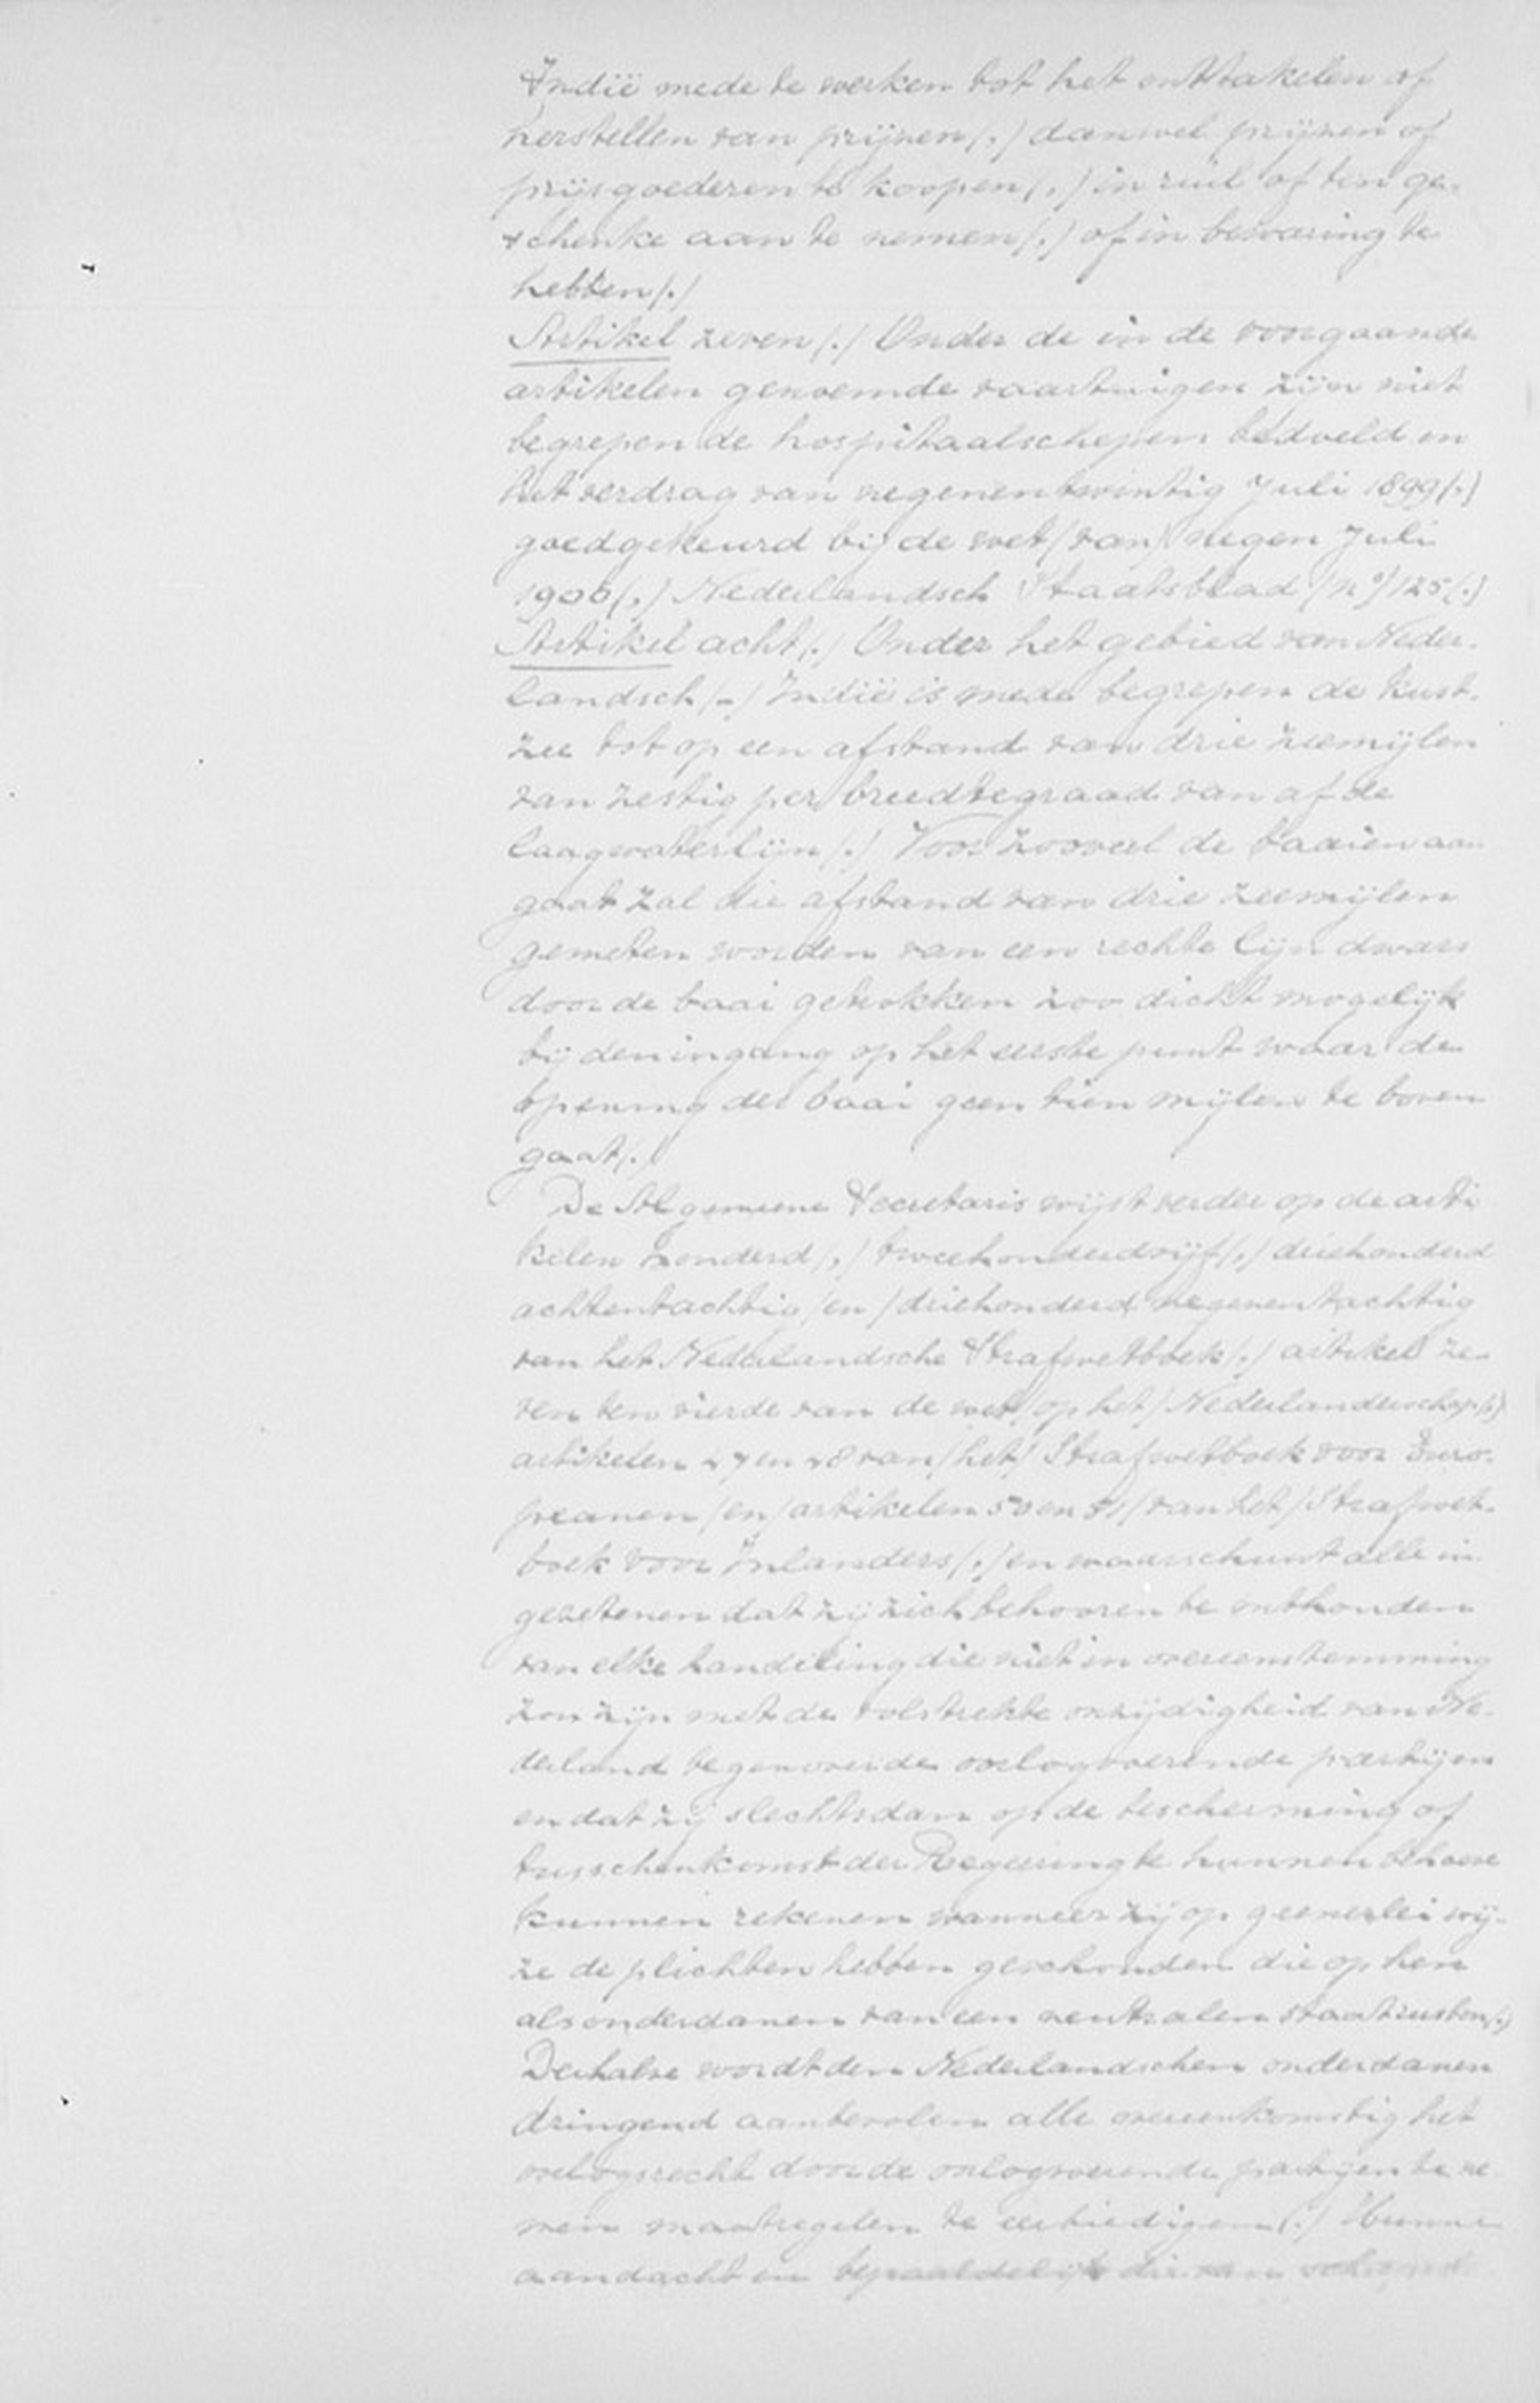 Indië mede te werken tot het onttakelen of
herstellen van prijzen (.) danwel prijzen of
prijsgoederen te koopen (,) in ruil of ten ge-
schenke aan te nemen (.) of in bewaring te
hebben (.)
Artikel zeven (.) Onder de in de voorgaande
artikelen genoemde vaartuigen zijn niet
begrepen de hospitaalschepen bedoeld in
het verdrag van negenentwintig Juli 1899 (.)
goedgekeurd bij de wet (van) negen Juli
1900 (,) Nederlandsch Staatsblad (no) 125 (.)
Artikel acht (.) Onder het gebied van Neder-
landsch (-) Indië is mede begrepen de kust-
zee tot op een afstand van drie zeemijlen
van zestig per breedtegraad van af de
laagwaterlijn (.) Voor zooveel de baaien aan
gaat zal die afstand van drie zeemijlen
gemeten worden van een rechte lijn dwars
door de baai getrokken zoo dicht mogelijk
bij den ingang op het eerste punt waar de
opening der baai geen tien mijlen te boven
gaat (.)
De Algemeene Secretaris wijst verder op de arti
kelen honderd (,) tweehonderdvijf (,) driehonderd
achtentachtig (en) driehonderd negenentachtig
van het Nederlandsche Strafwetboek (,) artikel ze-
ven ten vierde van de wet (op het) Nederlanderschap (,)
artikelen en van (het) Strafwetboek voor Euro-
peanen (en) artikelen 50 en 51 (van het) Strafwet-
boek voor Inlanders (,) en waarschuwt alle in-
gezetenen dat zij zich behooren te onthouden
van elke handeling die niet in overeenstemming
zou zijn met de volstrekte onzijdigheid van Ne-
derland tegenover de oorlogvoerende partijen
en dat zij slechts dan op de bescherming of
tusschenkomst der Regeering te hunnen behoeve
kunnen rekenen wanneer zij op geenerlei wij-
ze de plichten hebben geschonden die op hen
als onderdanen van een neutralen staat rusten (.)
Derhalve wordt den Nederlandschen onderdanen
dringend aanbevolen alle overeenkomstig het
oorlogsrecht door de oorlogvoerende partijen te ne-
men maatregelen te eerbiedigen (.) Hunne
aandacht en bepaaldelijk die van